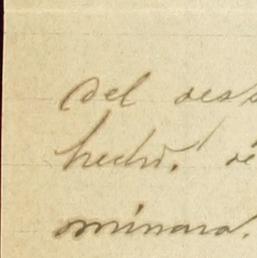 del des
hecho. se
ominara.